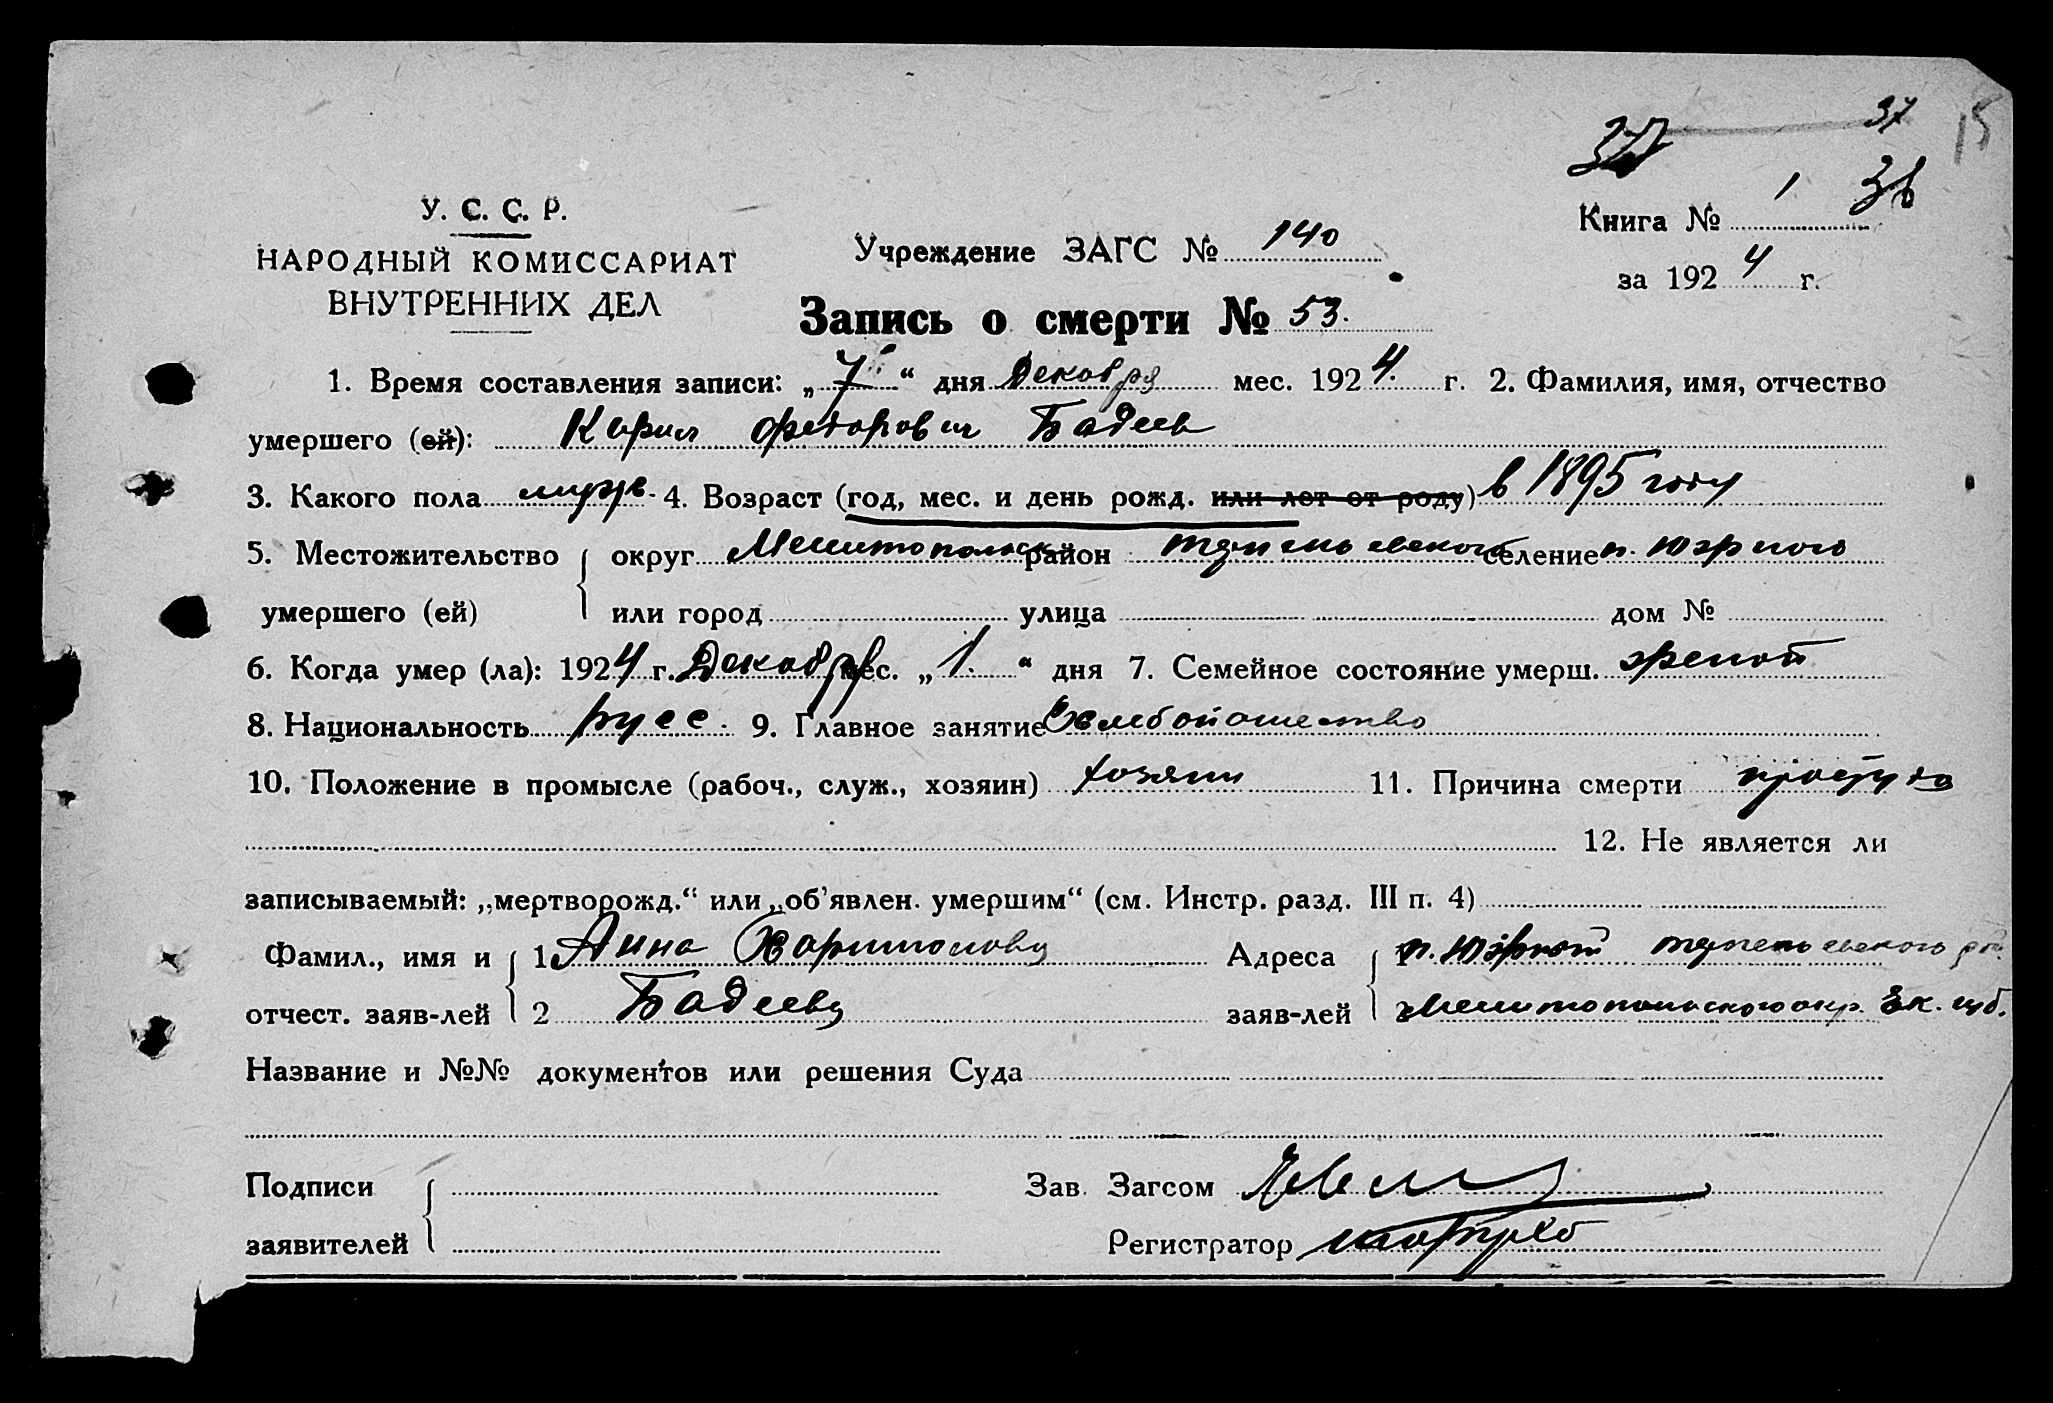 37 15
37
У. С. С. Р.
Книга № 1 36
НАРОДНЫЙ КОМИССАРИАТ
Учреждение ЗАГС № 140
за 1924 г.
ВНУТРЕННИХ ДЕЛ
Запись о смерти № 53.
1. Время составления записи: „7“ дня Декабря мес. 1924. г. 2. Фамилия, имя, отчество
умершего (ей): Кирил Федорович Бадеев
3. Какого пола муж. 4. Возраст (год, мес. и день рожд. или лет от роду) в 1895 году
5. Местожительство округ Мелитопольск район селение п. Южного
умершего (ей) или город улица дом №
6. Когда умер (ла): 1924 г. Декабря мес. „1.“ дня 7. Семейное состояние умерш. женат
8. Национальность русс. 9. Главное занятие
10. Положение в промысле (рабоч., служ., хозяин) хозяин 11. Причина смерти простуда
12. Не является ли
записываемый: „мертворожд.“ или „об'явлен. умершим“ (см. Инстр. разд. III п. 4)
Фамил., имя и 1 Анна Харитонова Адреса 1 п. Южной
отчест. заяв-лей 2 Бадеева заяв-лей 2 Мелитопольского окр. Ек. губ.
Название и №№ документов или решения Суда
Подписи Зав. Загсом
заявителей Регистратор